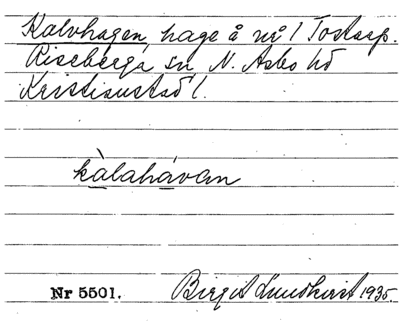 Kalvhagen, hage å nr 1 Tostarp.
Riseberga sn N. Åsbo hd
Kristianstad l.
kàlahávan
Nr 5501. Birgit Lundkvist 1935.